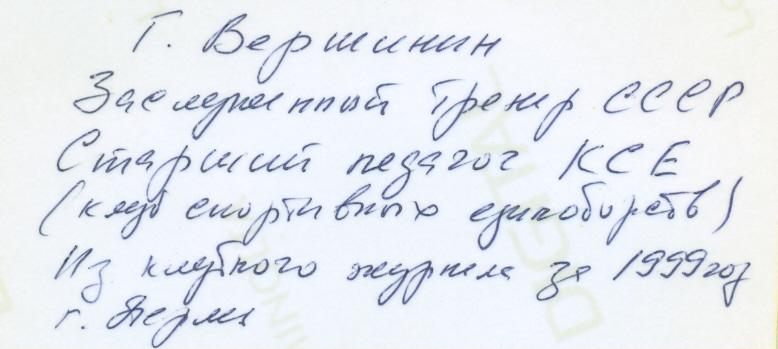 Г. Вершинин
Заслуженный тренер СССР
Старший педагог КСЕ
(клуб спортивных единоборств)
Из клубного журнала за 1999 год
г. Пермь